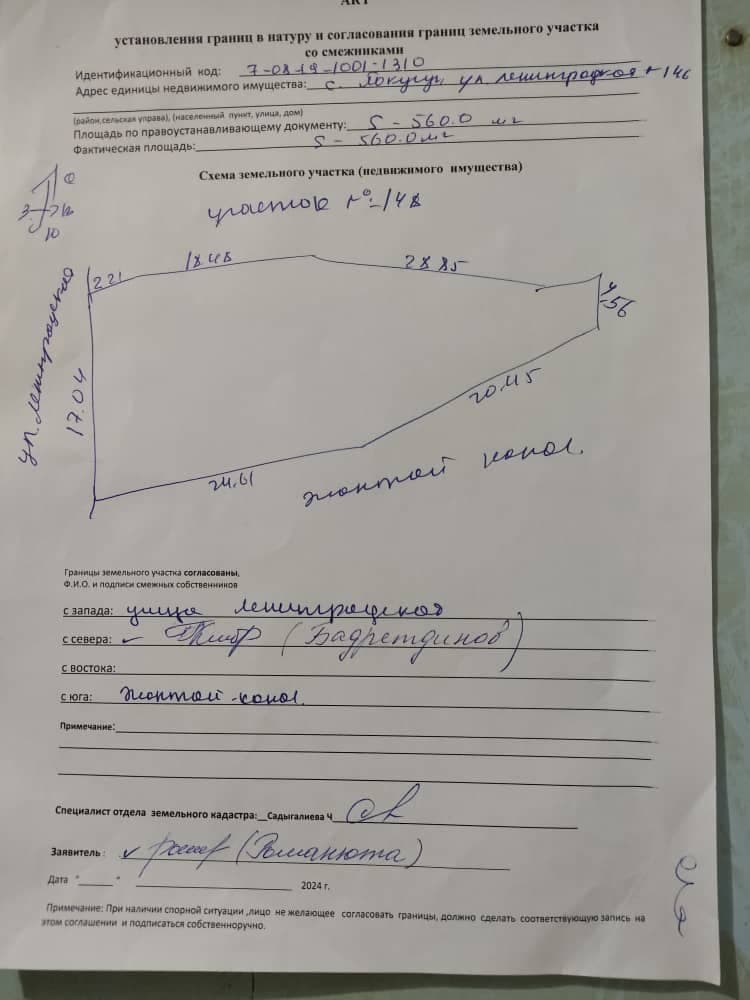 АКТ
установления границ в натуру и согласования границ земельного участка
со смежниками
Идентификационный код: 7-08-19-1001-1310
Адрес единицы недвижимого имущества: с. ул. Ленинградская № 146
(район,сельская управа), (населенный пункт, улица, дом)
Площадь по правоустанавливающему документу: S - 560.0 м2
Фактическая площадь: S - 560.0 м2
Схема земельного участка (недвижимого имущества)
участок № 148
2 21
18 48
28 85
4 56
ул. Ленинградская
17.04
20.45
24.61
канал.
Границы земельного участка согласованы,
Ф.И.О. и подписи смежных собственников
с запада: улица Ленинградская
с севера: (Бадретдинов)
с востока:
с юга: канал.
Примечание:
Специалист отдела земельного кадастра: Садыгалиева Ч
Заявитель : (Романюта)
Дата "______" 2024 г.
Примечание: При наличии спорной ситуации ,лицо не желающее согласовать границы, должно сделать соответствующую запись на
этом соглашении и подписаться собственноручно.